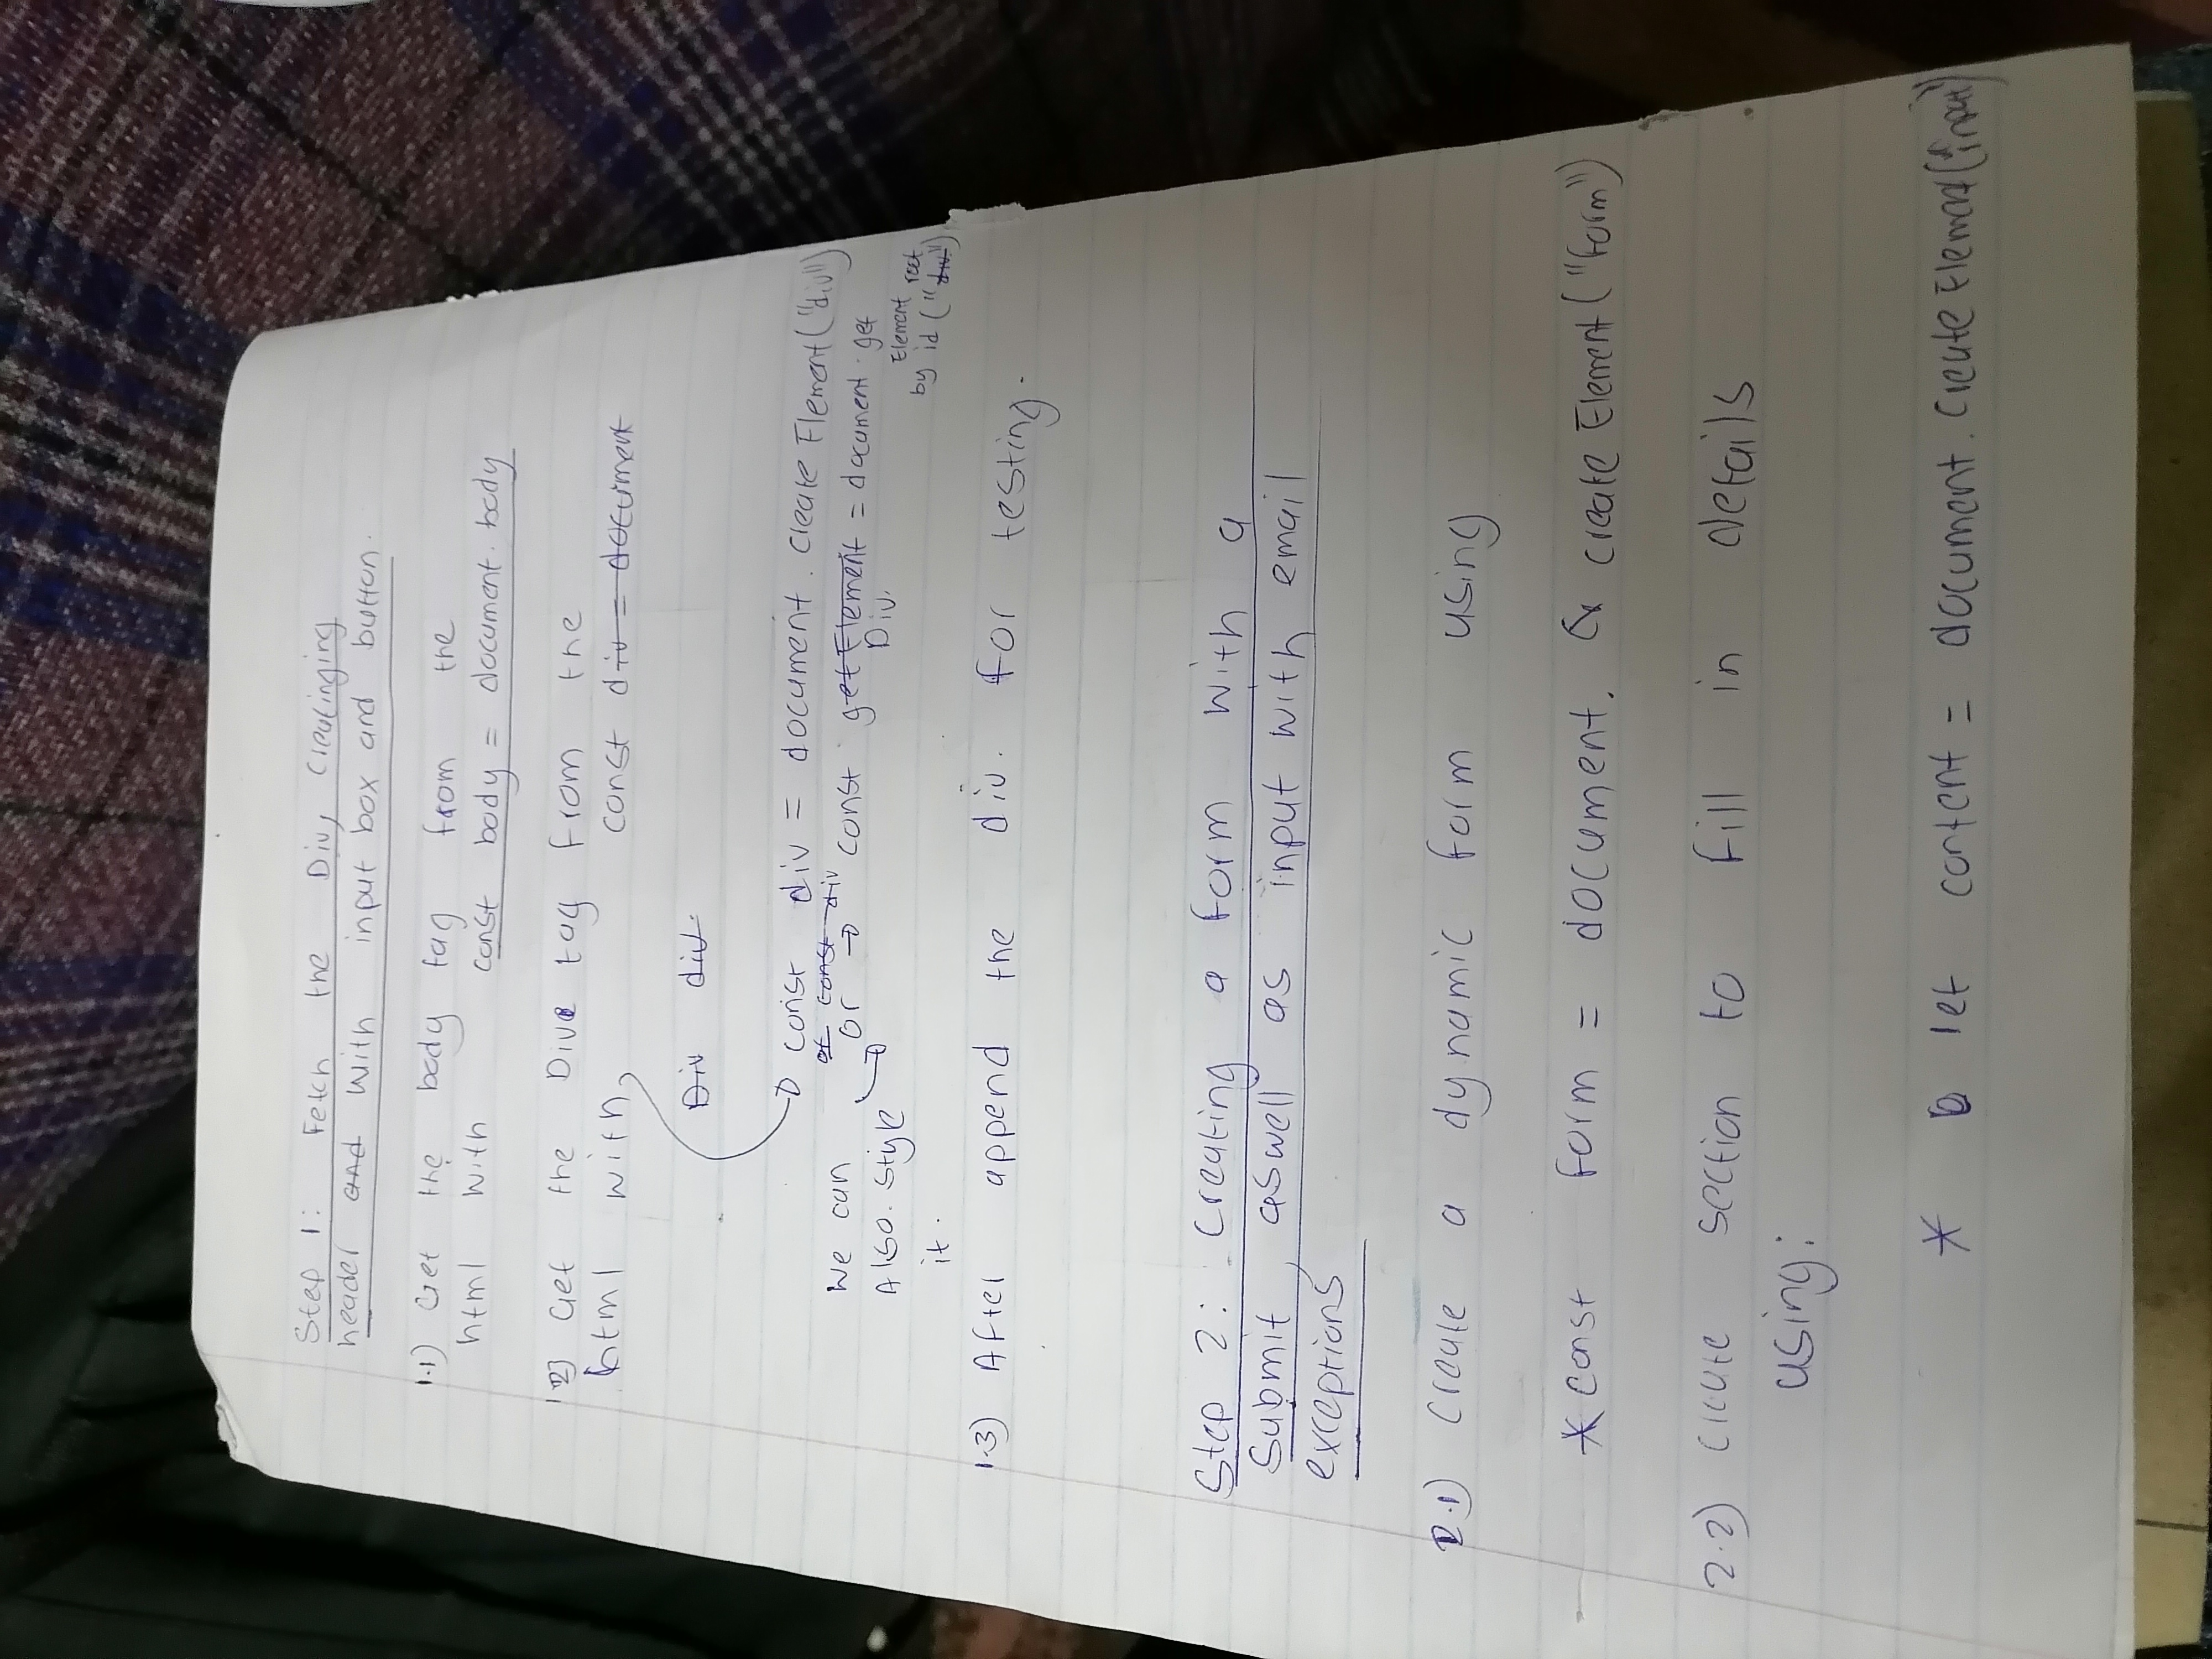 Step 1: Fetch the Div, Creatinging
header and with input box and button.
1.1) Get the body tag from the
html with const body = document.body
1.2) Get the Div tag from the
html with, const div = document
Div div
const div = document.createElement("div")
or const div
We can or → const getElement = document.get
Div. Element root
Also style by id ("div")
it.
1.3) After append the div. for testing.
Step 2: Creating a form with a
submit aswell as input with email
exceptions
2.1) Create a dynamic form using
* const form = document. createElement("form")
2.2) Create section to fill in details
using:
* let content = document.createElement("input")